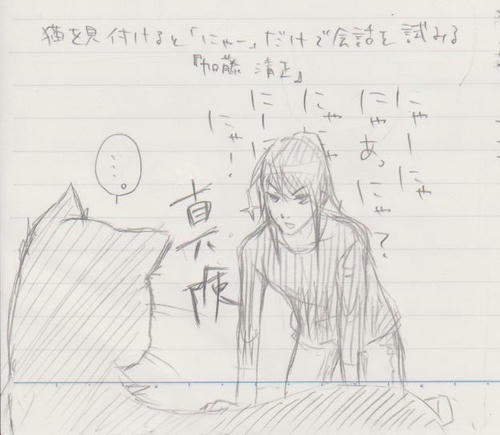 猫を見付けると「にゃー」だけで会話を試みる
『加藤 清正』
にゃーにゃ
にゃあっにゃ?
にゃ
にー
にゃー!
・・・・。
真